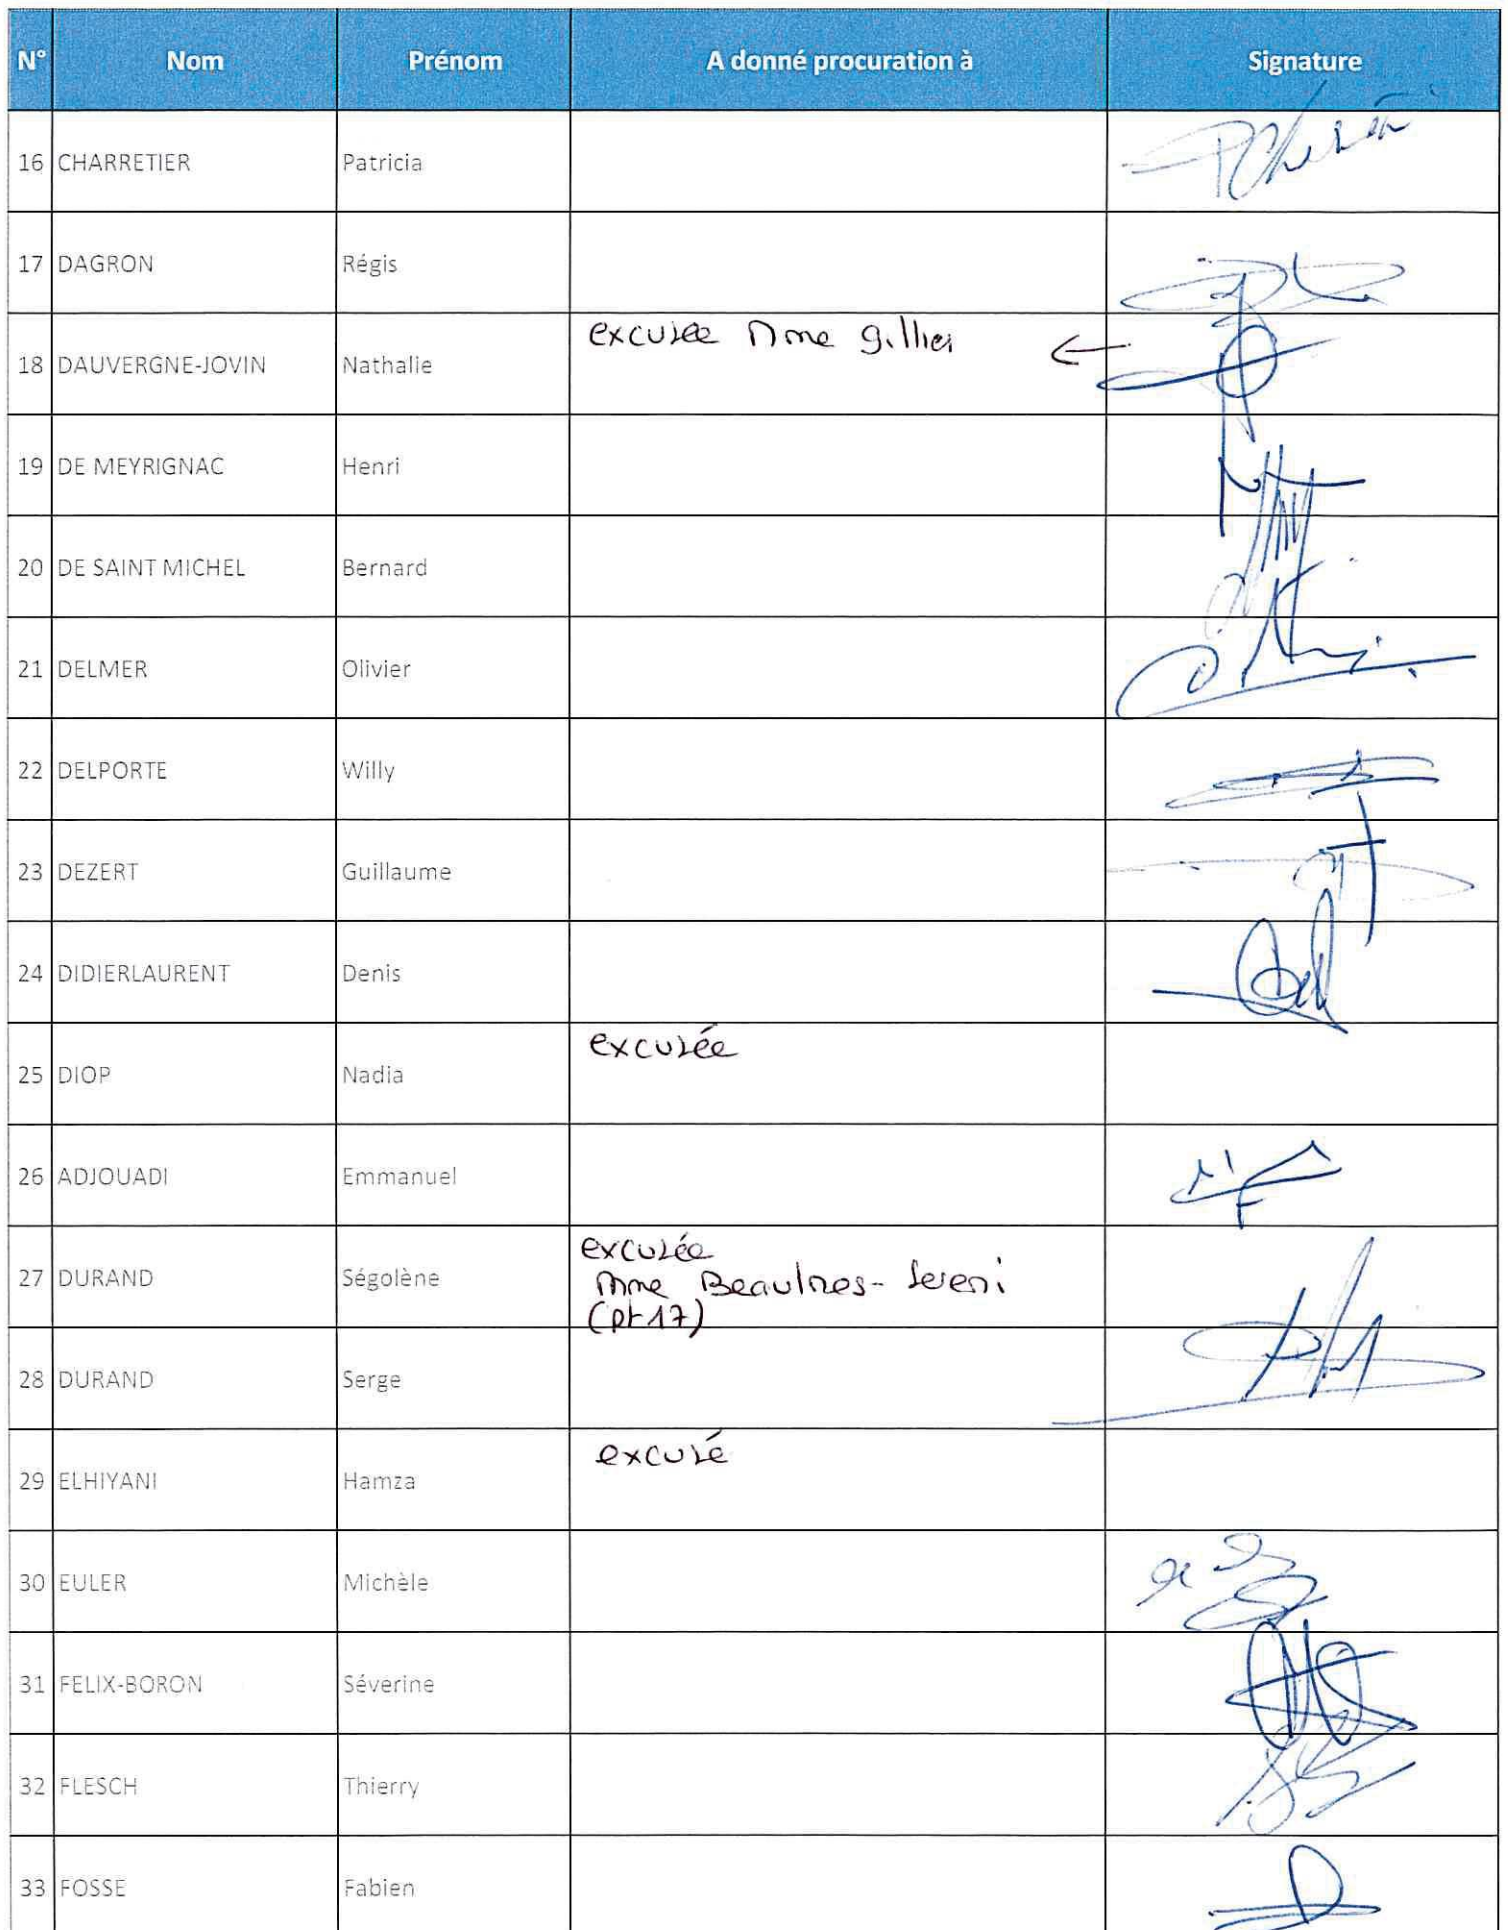 N° Nom Prénom A donné procuration à Signature
16 CHARRETIER Patricia
17 DAGRON Régis
18 DAUVERGNE-JOVIN Nathalie excusée Mme Gillier
19 DE MEYRIGNAC Henri
20 DE SAINT MICHEL Bernard
21 DELMER Olivier
22 DELPORTE Willy
23 DEZERT Guillaume
24 DIDIERLAURENT Denis
25 DIOP Nadia excusée
26 ADJOUADI Emmanuel
27 DURAND Ségolène excusée
Mme Beaulnes-Sereni
(pt 17)
28 DURAND Serge
29 ELHIYANI Hamza excusé
30 EULER Michèle
31 FELIX-BORON Séverine
32 FLESCH Thierry
33 FOSSE Fabien